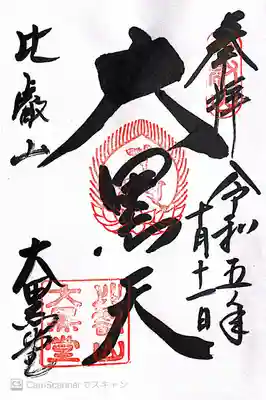 奉拝
令和五年
十月十一日
大黒天
比叡山
大黒堂
比叡山
大黒堂
CS CamScanner でスキャン